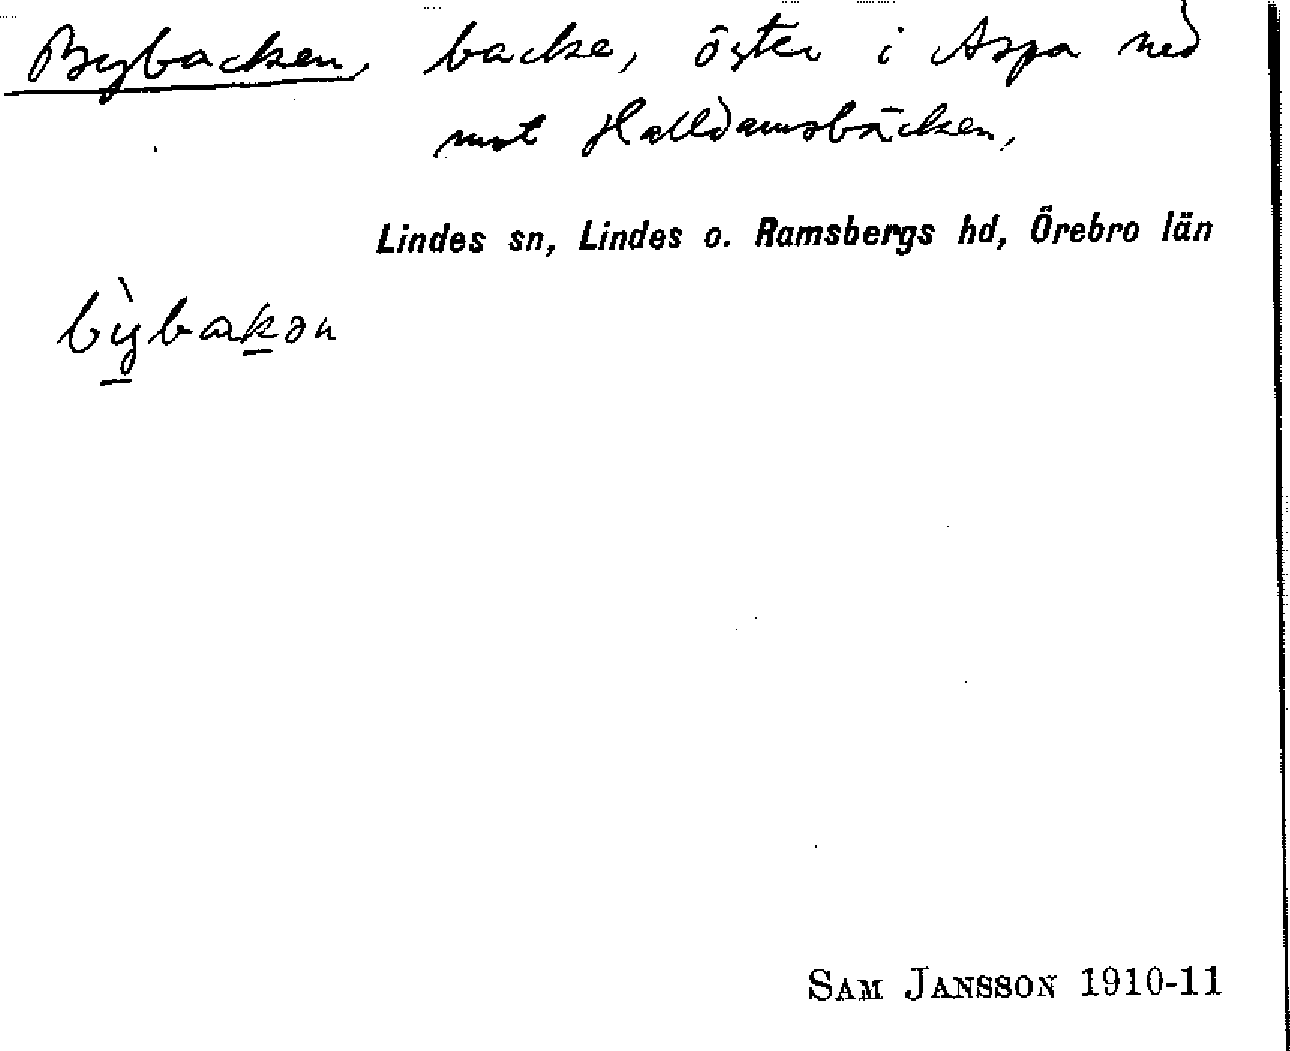 Bybacken, backe, öster i Aspa ned
mot Halldamsbäcken,
Lindes sn, Lindes o. Ramsbergs hd, Örebro län
bỳbakən
SAM JANSSON 1910-11